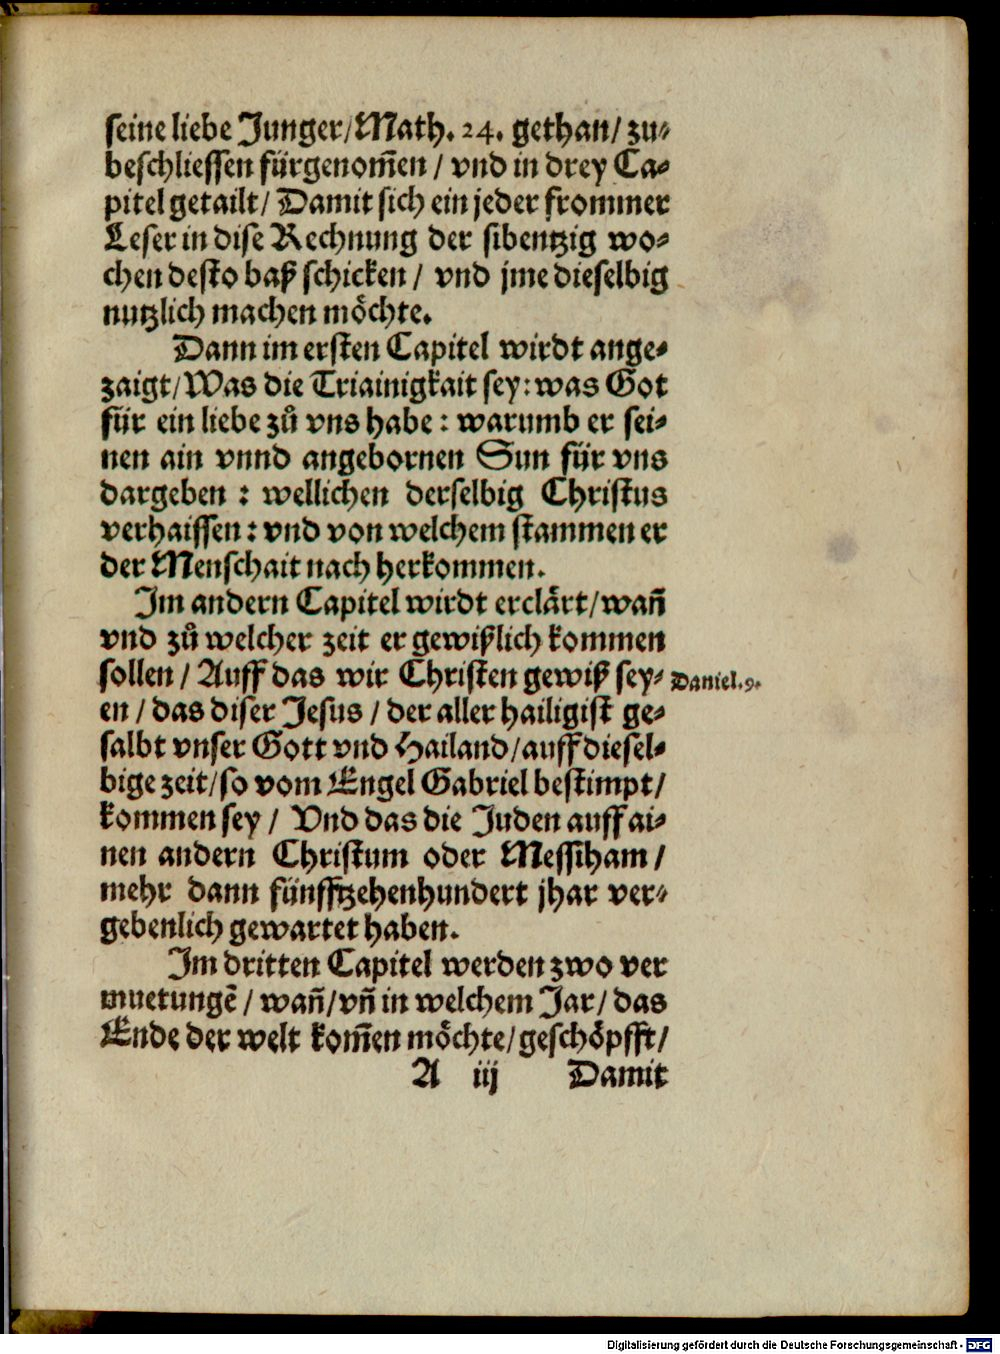 seine liebe Junger/Math. 24. gethan/ zu-
beschliessen fürgenom̃en / vnd in drey Ca-
pitel getailt/ Damit sich ein jeder frommer
Leser in dise Rechnung der sibentzig wo-
chen desto baß schicken / vnd jme dieselbig
nutzlich machen möchte.
Dann im ersten Capitel wirdt ange-
zaigt/Was die Triainigkait sey: was Got
für ein liebe zů vns habe : warumb er sei-
nen ain vnnd angebornen Sun für vns
dargeben : wellichen derselbig Christus
verhaissen: vnd von welchem stammen er
der Menschait nach herkommen.
Im andern Capitel wirdt erclärt/wañ
vnd zů welcher zeit er gewißlich kommen
sollen / Auff das wir Christen gewiß sey- Daniel.9.
en / das diser Jesus / der aller hailigist ge-
salbt vnser Gott vnd Hailand/auff diesel-
bige zeit/so vom Engel Gabriel bestimpt/
kommen sey / Vnd das die Juden auff ai-
nen andern Christum oder Messiham /
mehr dann fünfftzehenhundert jhar ver-
gebenlich gewartet haben.
Im dritten Capitel werden zwo ver
muetungẽ / wañ/vñ in welchem Jar/ das
Ende der welt kom̃en möchte/geschöpfft/
A iij Damit
Digitalisierung gefördert durch die Deutsche Forschungsgemeinschaft - DFG